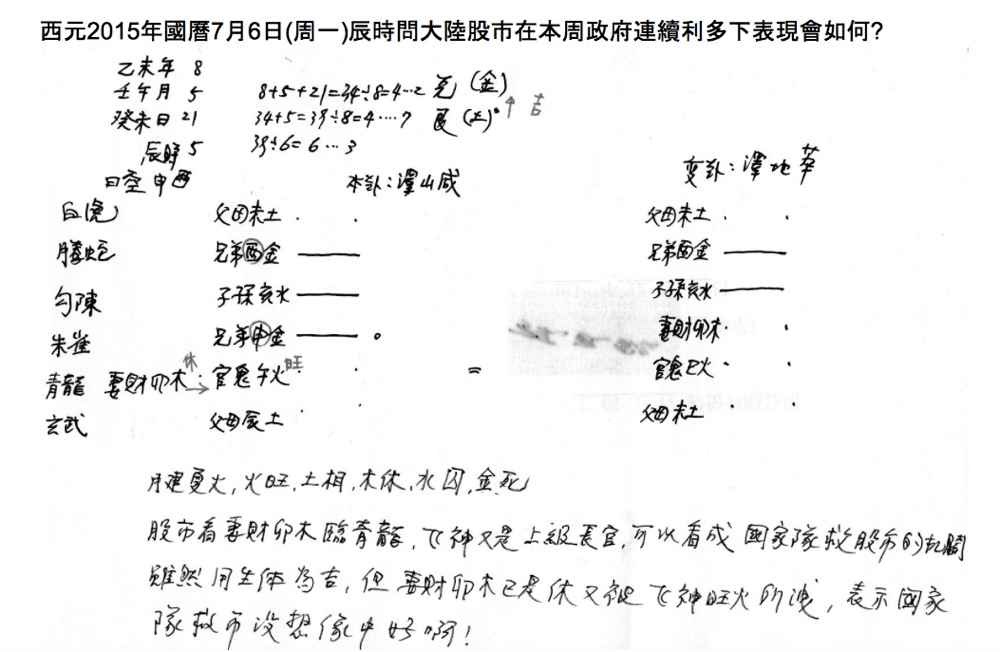 西元2015年國曆7月6日(周一)辰時問大陸股市在本周政府連續利多下表現會如何?
乙未年 8
壬午月 5 8+5+21=34÷8=4…2 兌 (金)
癸未日 21 34+5=39÷8=4….7 艮 (土) ↑ 吉
辰時 5 39÷6= 6 …3
日空 申酉 本卦:澤山咸 变卦:澤地萃
白虎 父母未土 父母未土
騰蛇 兄弟酉金 兄弟酉金
勾陳 子孫亥水 子孫亥水
朱雀 兄弟申金 妻財卯木
青龍 妻財卯木 休 → 官鬼午火 旺 = 官鬼巳火
玄武 父母辰土 父母未土
月建夏火,火旺,土相,木休,水囚,金死
股市看妻財卯木臨青龍,飞神又是上級長官,可以看成 國家隊救股市的
雖然用生体為吉,但妻財卯木已是休又被飞神旺火所洩,表示國家
隊救市沒想像中好啊!